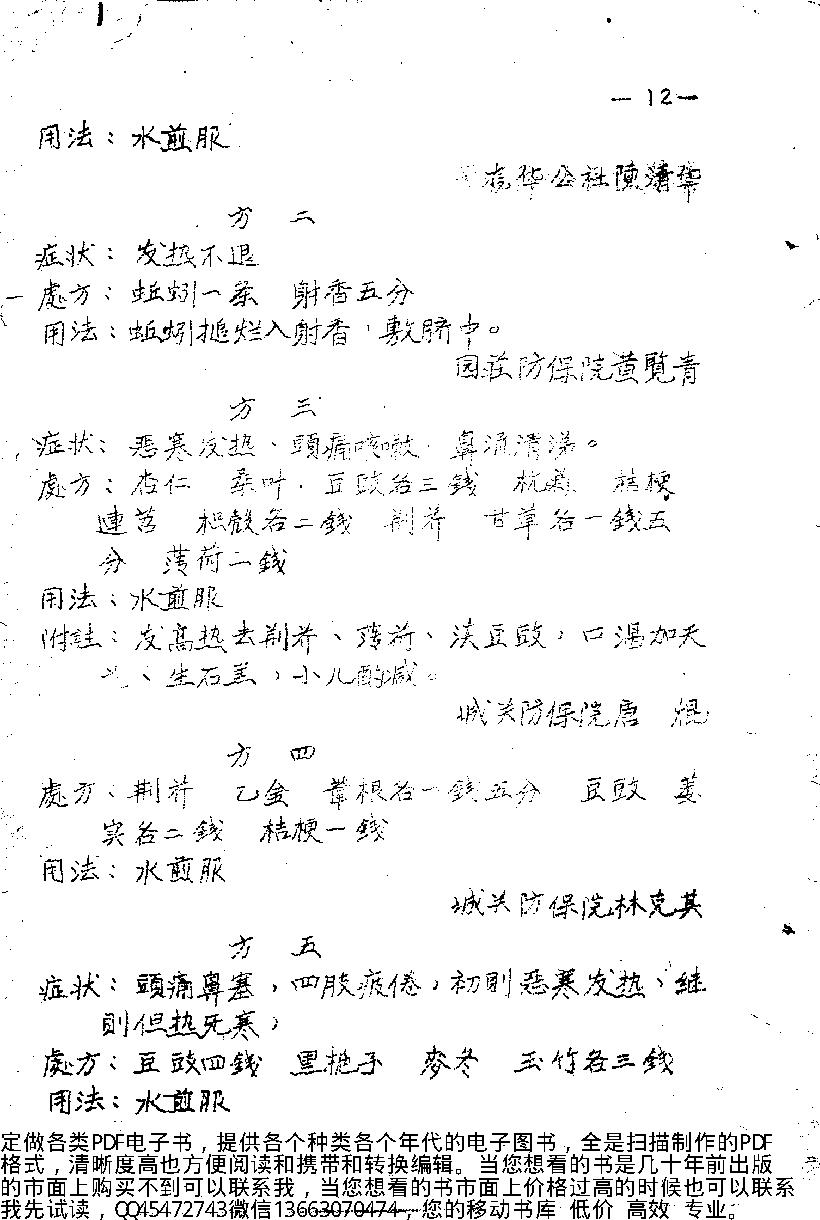 — 12 —
用法：水煎服
华公社陳清华
方 二
症状：发热不退
處方：蚯蚓一条 射香五分
用法：蚯蚓搥烂入射香，敷臍中。
园莊防保院黄覽青
方 三
症状：恶寒发热、頭痛咳嗽、鼻流清涕。
處方：杏仁 桑叶、豆豉各三錢 杭菊 桔梗
連召 枳殼各二錢 荆芥 甘草各一錢五
分 薄荷二錢
用法：水煎服
附註：发高热去荆芥、薄荷、淡豆豉，口渴加天
、生石羔，小儿酌减。
城关防保院唐 焜
方 四
處方、荆芥 乙金 葦根各一錢五分 豆豉 蒌
实各二錢 桔梗一錢
用法：水煎服
城关防保院林克其
方 五
症状：頭痛鼻塞，四肢疲倦，初則恶寒发热、继
則但热无寒，
處方：豆豉四錢 黑梔子 麥冬 玉竹各三錢
用法：水煎服
定做各类PDF电子书，提供各个种类各个年代的电子图书，全是扫描制作的PDF
格式，清晰度高也方便阅读和携带和转换编辑。当您想看的书是几十年前出版
的市面上购买不到可以联系我，当您想看的书市面上价格过高的时候也可以联系
我先试读，QQ45472743微信13663070474，您的移动书库 低价 高效 专业。